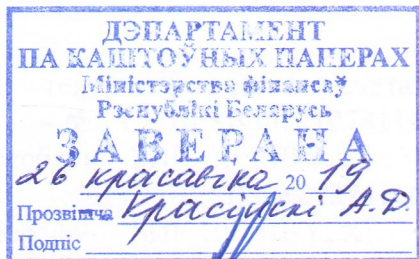 ДЭПАРТАМЕНТ
ПА КАШТОЎНЫХ ПАПЕРАХ
Міністэрства фінансаў
Рэспублікі Беларусь
ЗАВЕРАНА
26 красавіка 2019
Прозвішча Красінскі А.Ф.
Подпіс